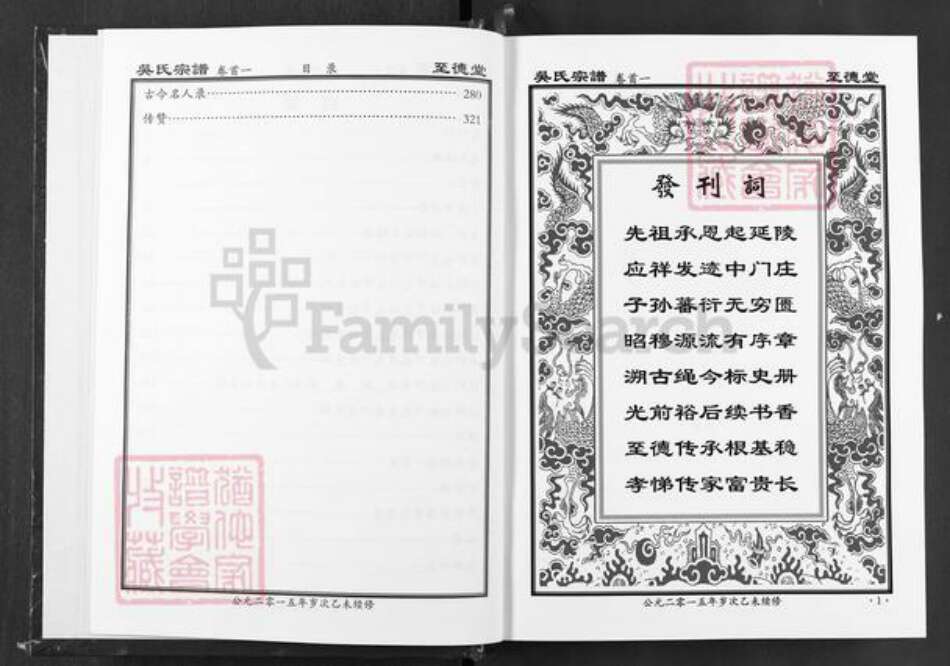 吳氏宗譜 卷首一 目录 至德堂
古今名人录 280
传赞 321
公元二零一五年岁次乙未续修
吳氏宗譜 卷首一 至德堂
發刊詞
先祖承恩起延陵
应祥发迹中门庄
子孙蕃衍无穷匮
昭穆源流有序章
溯古绳今标史册
光前裕后续书香
至德传承根基稳
孝悌传家富贵长
公元二零一五年岁次乙未续修
·1·
FamilySearch